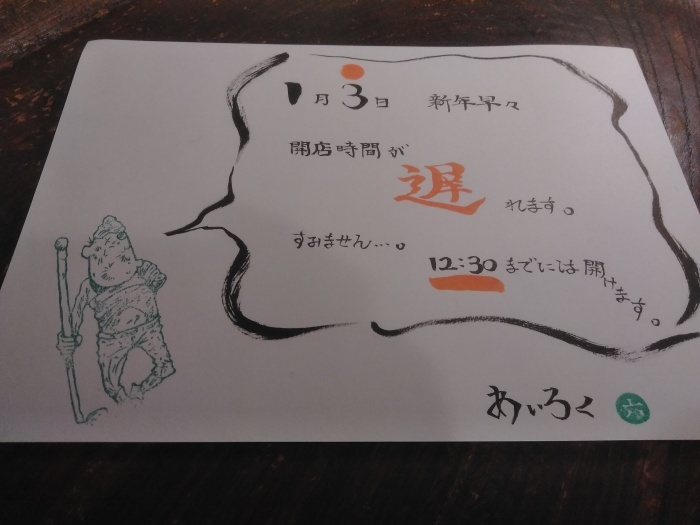 1月3日 新年早々
開店時間が
遅れます。
すみません…。
12:30までには開けます。
あいろく